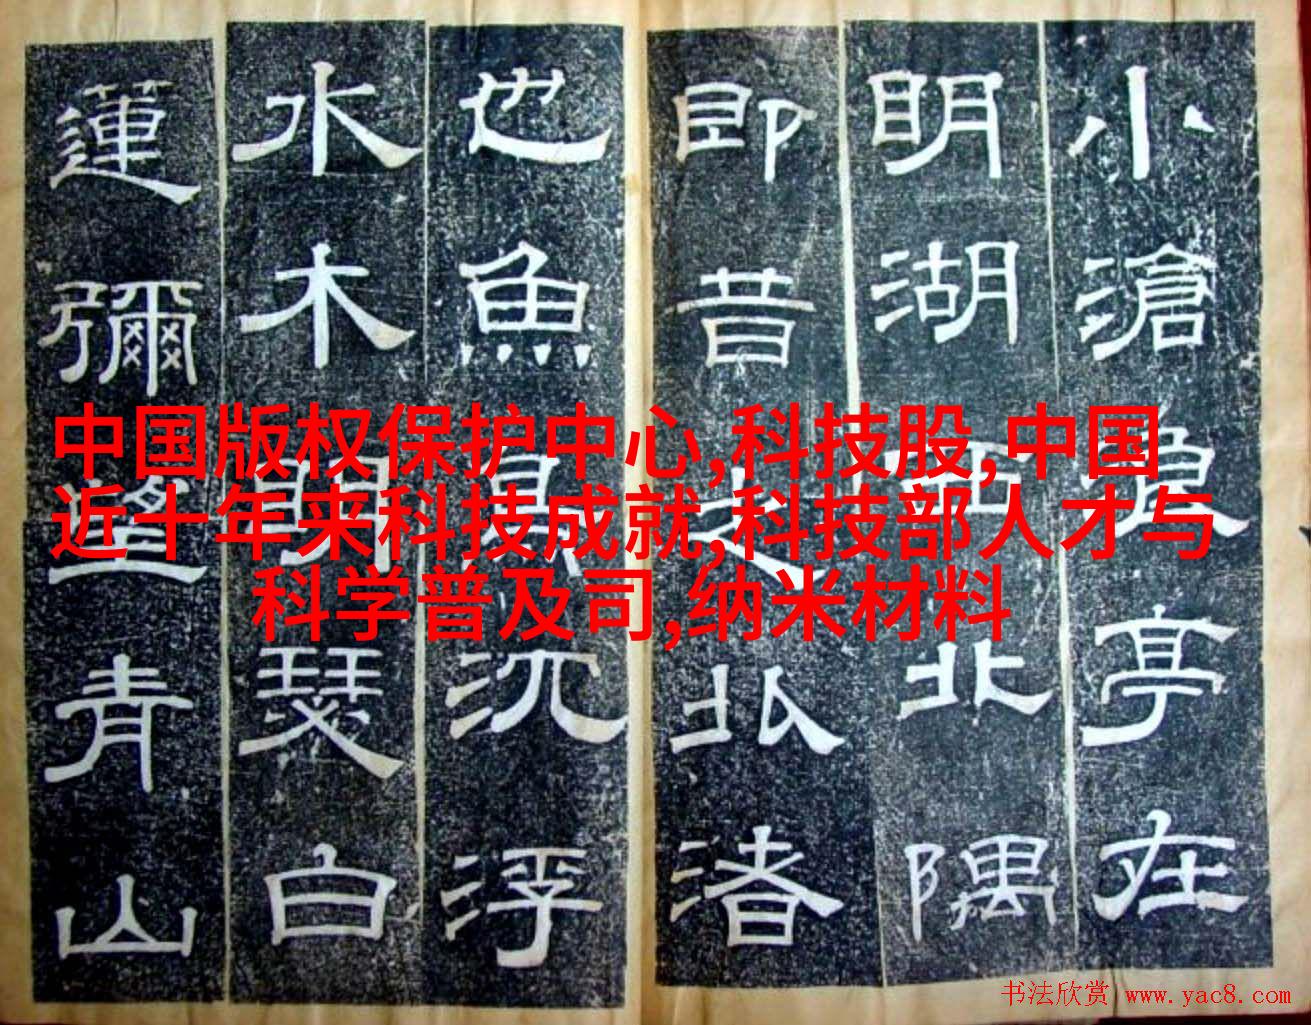 小滄浪亭在
明湖西北隅
即昔之北渚
也魚鳥沉浮
水木明瑟白
蓮彌望青山
中国版权保护中心,科技股,中国
近十年来科技成就,科技部人才与
科学普及司,纳米材料
书法欣赏 www.yac8.com